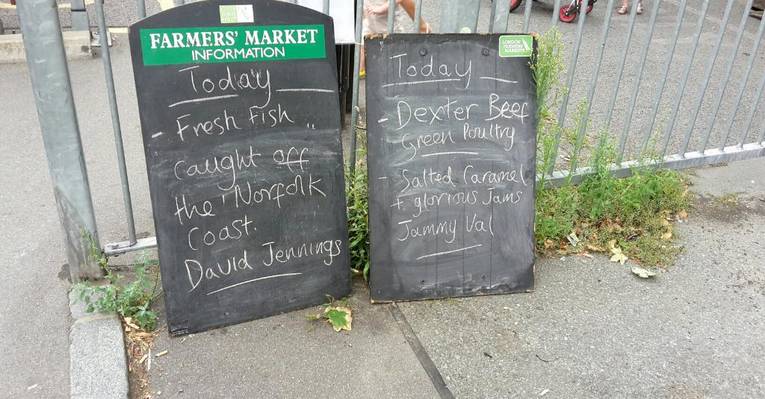 FARMERS' MARKET
INFORMATION
Today
- Fresh Fish
caught off
the Norfolk
Coast.
David Jennings
LONDON
FARMERS'
MARKETS
Today
- Dexter Beef
Green Poultry
- Salted Caramel
+ glorious Jams
Jammy Val